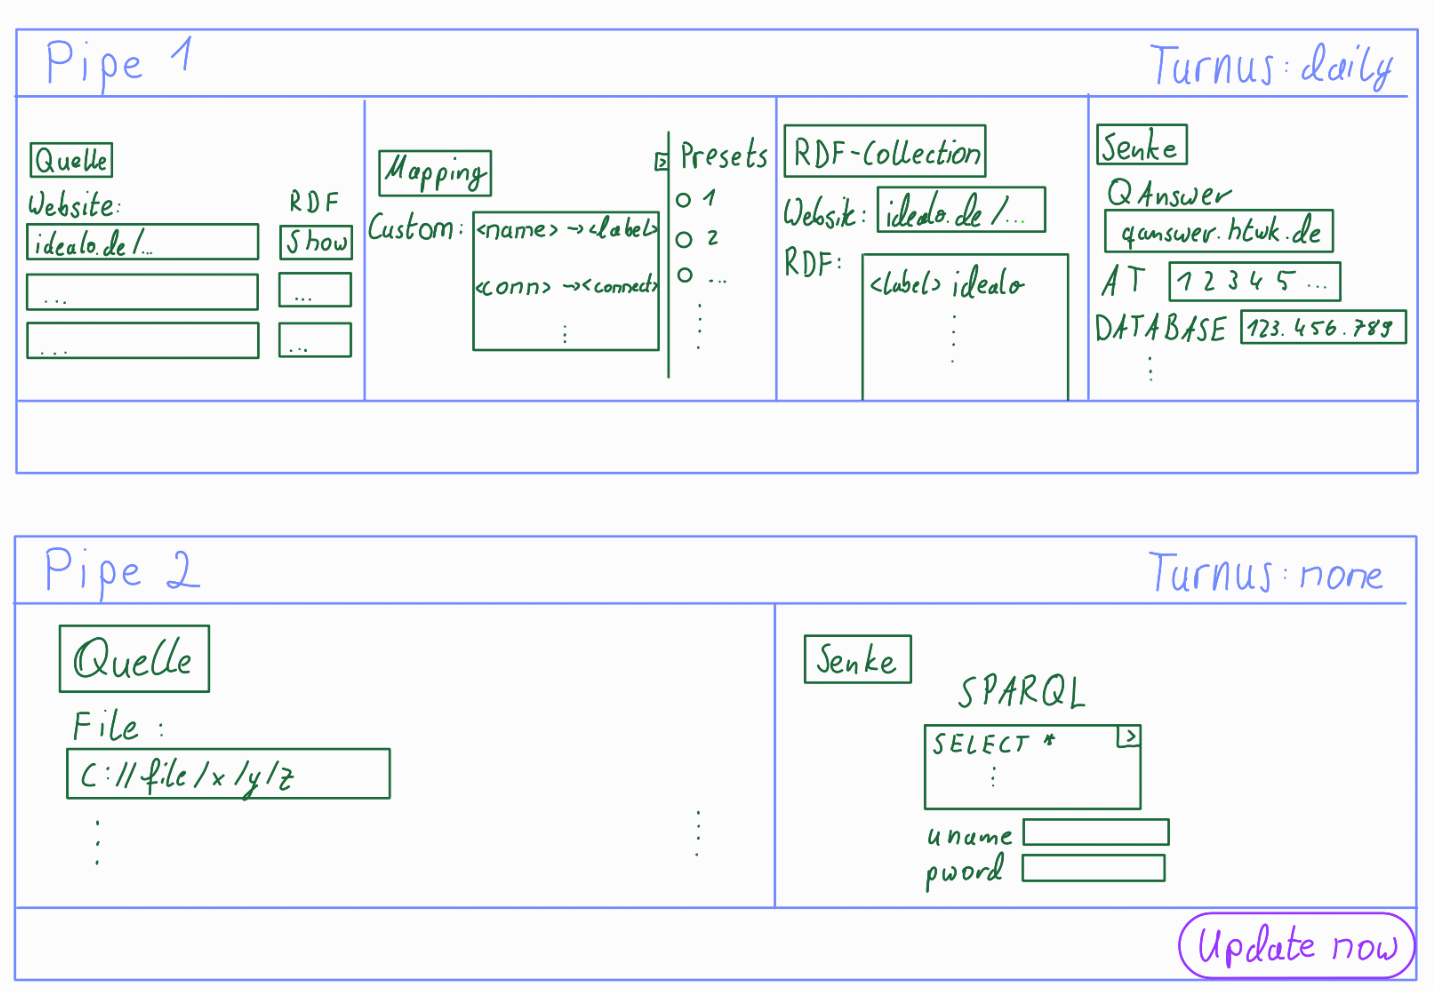 Pipe 1
Turnus: daily
Quelle
Website:
RDF
idealo.de/...
Show
...
...
...
...
Mapping
Custom:
<name> -> <label>
<conn> -> <connect>
>
Presets
1
2
...
RDF-Collection
Website:
idealo.de/...
RDF:
<label> idealo
Senke
QAnswer
qanswer.htwk.de
AT
1 2 3 4 5 ...
DATABASE
123.456.789
Pipe 2
Turnus: none
Quelle
File:
C://file/x/y/z
Senke
SPARQL
SELECT *
>
uname
pword
Update now